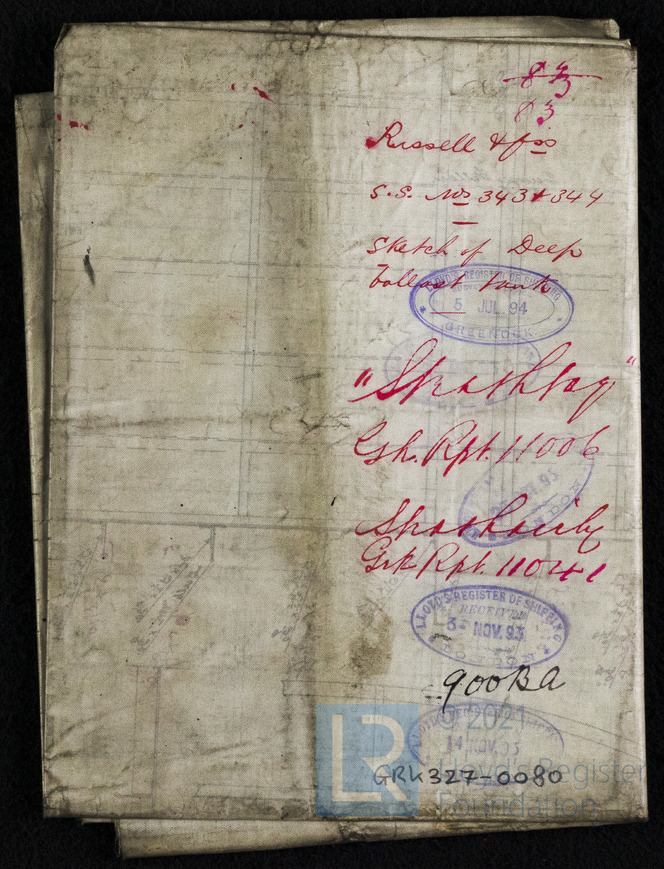 83
83
Russell & Co
S.S. Nos 343 & 344
Sketch of Deep
ballast tank
LLOYD'S REGISTER OF SHIPPING
5 JUL 94
GREENOCK
"Strathtay"
Gk. Rpt. 11006
Strathairly
Grk Rpt. 11041
LLOYD'S REGISTER OF SHIPPING
RECEIVED
3 - NOV. 93
900BA
14 NOV. 93
LR
© 2021
GRK327-0080
Lloyd's Register
Foundation